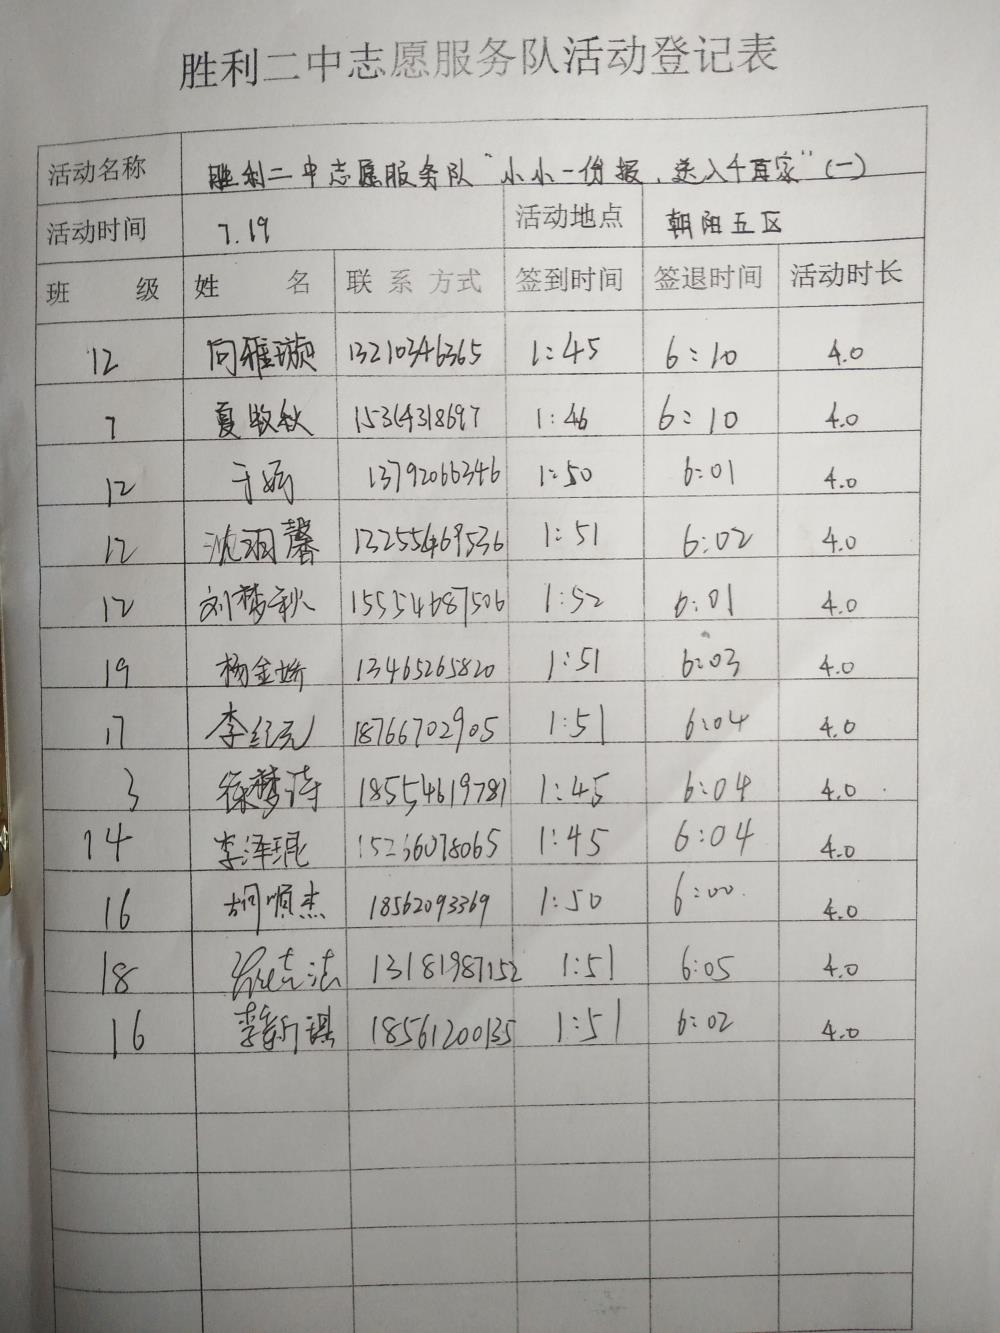 胜利二中志愿服务队活动登记表
活动名称 胜利二中志愿服务队“小小一份报，送入千百家”（一）
活动时间 7.19 活动地点 朝阳五区
班 级 姓 名 联 系 方式 签到时间 签退时间 活动时长
12 向雅璇 13210346365 1:45 6:10 4.0
7 夏收秋 15314318697 1:46 6:10 4.0
12 于娇 13792066346 1:50 6:01 4.0
12 沈羽馨 13255469536 1:51 6:02 4.0
12 刘梦秋 15554687506 1:52 6:01 4.0
19 杨金娇 13465265820 1:51 6:03 4.0
17 李纪元 18766702905 1:51 6:04 4.0
3 徐梦涛 18554619781 1:45 6:04 4.0
14 李泽琨 15266078065 1:45 6:04 4.0
16 胡顺杰 18562093369 1:50 6:00 4.0
18 13181987152 1:51 6:05 4.0
16 李新琪 18561200135 1:51 6:02 4.0